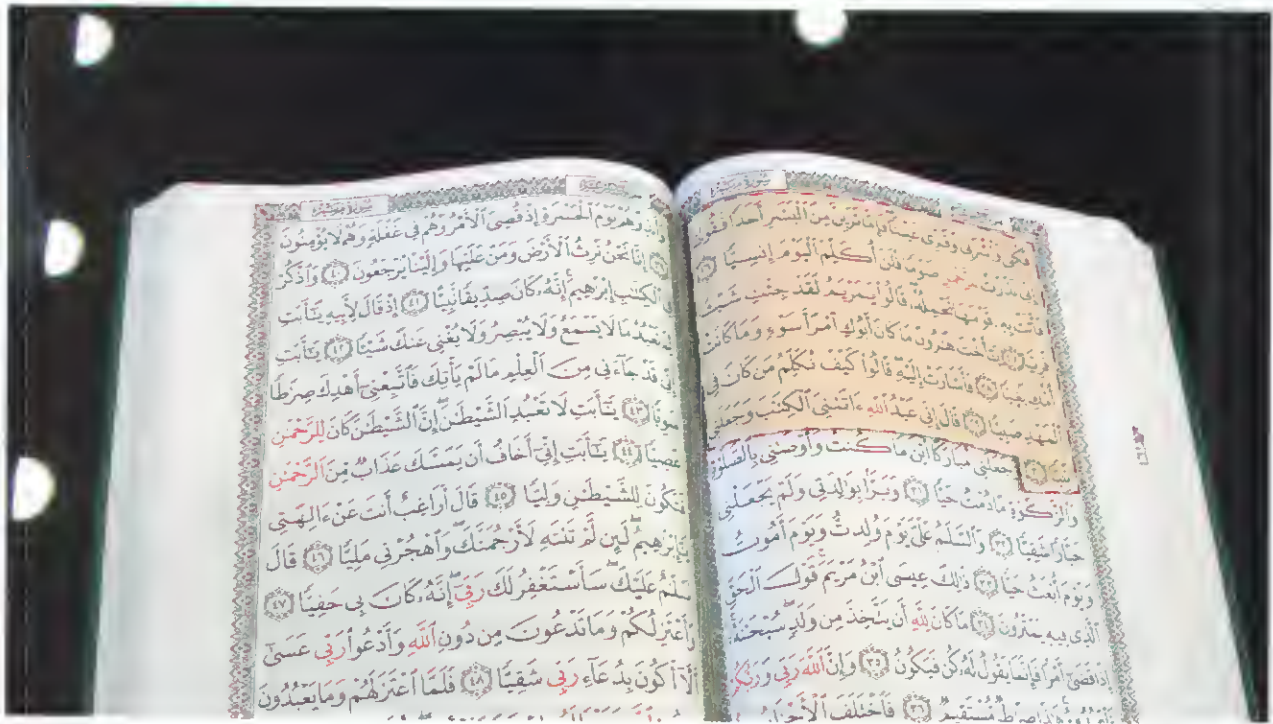 سُورَةُ مَرْيَمَ
فَكُلِى وَٱشْرَبِى وَقَرِّى عَيْنًا فَإِمَّا تَرَيِنَّ مِنَ ٱلْبَشَرِ أَحَدًا فَقُولِىٓ
إِنِّى نَذَرْتُ لِلرَّحْمَٰنِ صَوْمًا فَلَنْ أُكَلِّمَ ٱلْيَوْمَ إِنسِيًّا ٢٦
فَأَتَتْ بِهِۦ قَوْمَهَا تَحْمِلُهُۥ قَالُوا۟ يَٰمَرْيَمُ لَقَدْ جِئْتِ شَيْـًٔا
فَرِيًّا ٢٧ يَٰٓأُخْتَ هَٰرُونَ مَا كَانَ أَبُوكِ ٱمْرَأَ سَوْءٍ وَمَا كَانَتْ
أُمُّكِ بَغِيًّا ٢٨ فَأَشَارَتْ إِلَيْهِ قَالُوا۟ كَيْفَ نُكَلِّمُ مَن كَانَ فِى
ٱلْمَهْدِ صَبِيًّا ٢٩ قَالَ إِنِّى عَبْدُ ٱللَّهِ ءَاتَىٰنِىَ ٱلْكِتَٰبَ وَجَعَلَنِى
نَبِيًّا ٣٠ وَجَعَلَنِى مُبَارَكًا أَيْنَ مَا كُنتُ وَأَوْصَٰنِى بِٱلصَّلَوٰةِ
وَٱلزَّكَوٰةِ مَا دُمْتُ حَيًّا ٣١ وَبَرًّۢا بِوَٰلِدَتِى وَلَمْ يَجْعَلْنِى
جَبَّارًا شَقِيًّا ٣٢ وَٱلسَّلَٰمُ عَلَىَّ يَوْمَ وُلِدتُّ وَيَوْمَ أَمُوتُ
وَيَوْمَ أُبْعَثُ حَيًّا ٣٣ ذَٰلِكَ عِيسَى ٱبْنُ مَرْيَمَ قَوْلَ ٱلْحَقِّ
ٱلَّذِى فِيهِ يَمْتَرُونَ ٣٤ مَا كَانَ لِلَّهِ أَن يَتَّخِذَ مِن وَلَدٍ سُبْحَٰنَهُۥٓ
إِذَا قَضَىٰٓ أَمْرًا فَإِنَّمَا يَقُولُ لَهُۥ كُن فَيَكُونُ ٣٥ وَإِنَّ ٱللَّهَ رَبِّى وَرَبُّكُمْ
فَٱعْبُدُوهُ هَٰذَا صِرَٰطٌ مُّسْتَقِيمٌ ٣٦ فَٱخْتَلَفَ ٱلْأَحْزَابُ
سُورَةُ مَرْيَمَ
وَأَنذِرْهُمْ يَوْمَ ٱلْحَسْرَةِ إِذْ قُضِىَ ٱلْأَمْرُ وَهُمْ فِى غَفْلَةٍ وَهُمْ لَا يُؤْمِنُونَ
٣٩ إِنَّا نَحْنُ نَرِثُ ٱلْأَرْضَ وَمَنْ عَلَيْهَا وَإِلَيْنَا يُرْجَعُونَ ٤٠ وَٱذْكُرْ
فِى ٱلْكِتَٰبِ إِبْرَٰهِيمَ إِنَّهُۥ كَانَ صِدِّيقًا نَّبِيًّا ٤١ إِذْ قَالَ لِأَبِيهِ يَٰٓأَبَتِ
لِمَ تَعْبُدُ مَا لَا يَسْمَعُ وَلَا يُبْصِرُ وَلَا يُغْنِى عَنكَ شَيْـًٔا ٤٢ يَٰٓأَبَتِ
إِنِّى قَدْ جَآءَنِى مِنَ ٱلْعِلْمِ مَا لَمْ يَأْتِكَ فَٱتَّبِعْنِىٓ أَهْدِكَ صِرَٰطًا
سَوِيًّا ٤٣ يَٰٓأَبَتِ لَا تَعْبُدِ ٱلشَّيْطَٰنَ إِنَّ ٱلشَّيْطَٰنَ كَانَ لِلرَّحْمَٰنِ
عَصِيًّا ٤٤ يَٰٓأَبَتِ إِنِّىٓ أَخَافُ أَن يَمَسَّكَ عَذَابٌ مِّنَ ٱلرَّحْمَٰنِ
فَتَكُونَ لِلشَّيْطَٰنِ وَلِيًّا ٤٥ قَالَ أَرَاغِبٌ أَنتَ عَنْ ءَالِهَتِى
يَٰٓإِبْرَٰهِيمُ لَئِن لَّمْ تَنتَهِ لَأَرْجُمَنَّكَ وَٱهْجُرْنِى مَلِيًّا ٤٦ قَالَ
سَلَٰمٌ عَلَيْكَ سَأَسْتَغْفِرُ لَكَ رَبِّىٓ إِنَّهُۥ كَانَ بِى حَفِيًّا ٤٧
وَأَعْتَزِلُكُمْ وَمَا تَدْعُونَ مِن دُونِ ٱللَّهِ وَأَدْعُوا۟ رَبِّى عَسَىٰٓ
أَلَّآ أَكُونَ بِدُعَآءِ رَبِّى شَقِيًّا ٤٨ فَلَمَّا ٱعْتَزَلَهُمْ وَمَا يَعْبُدُونَ